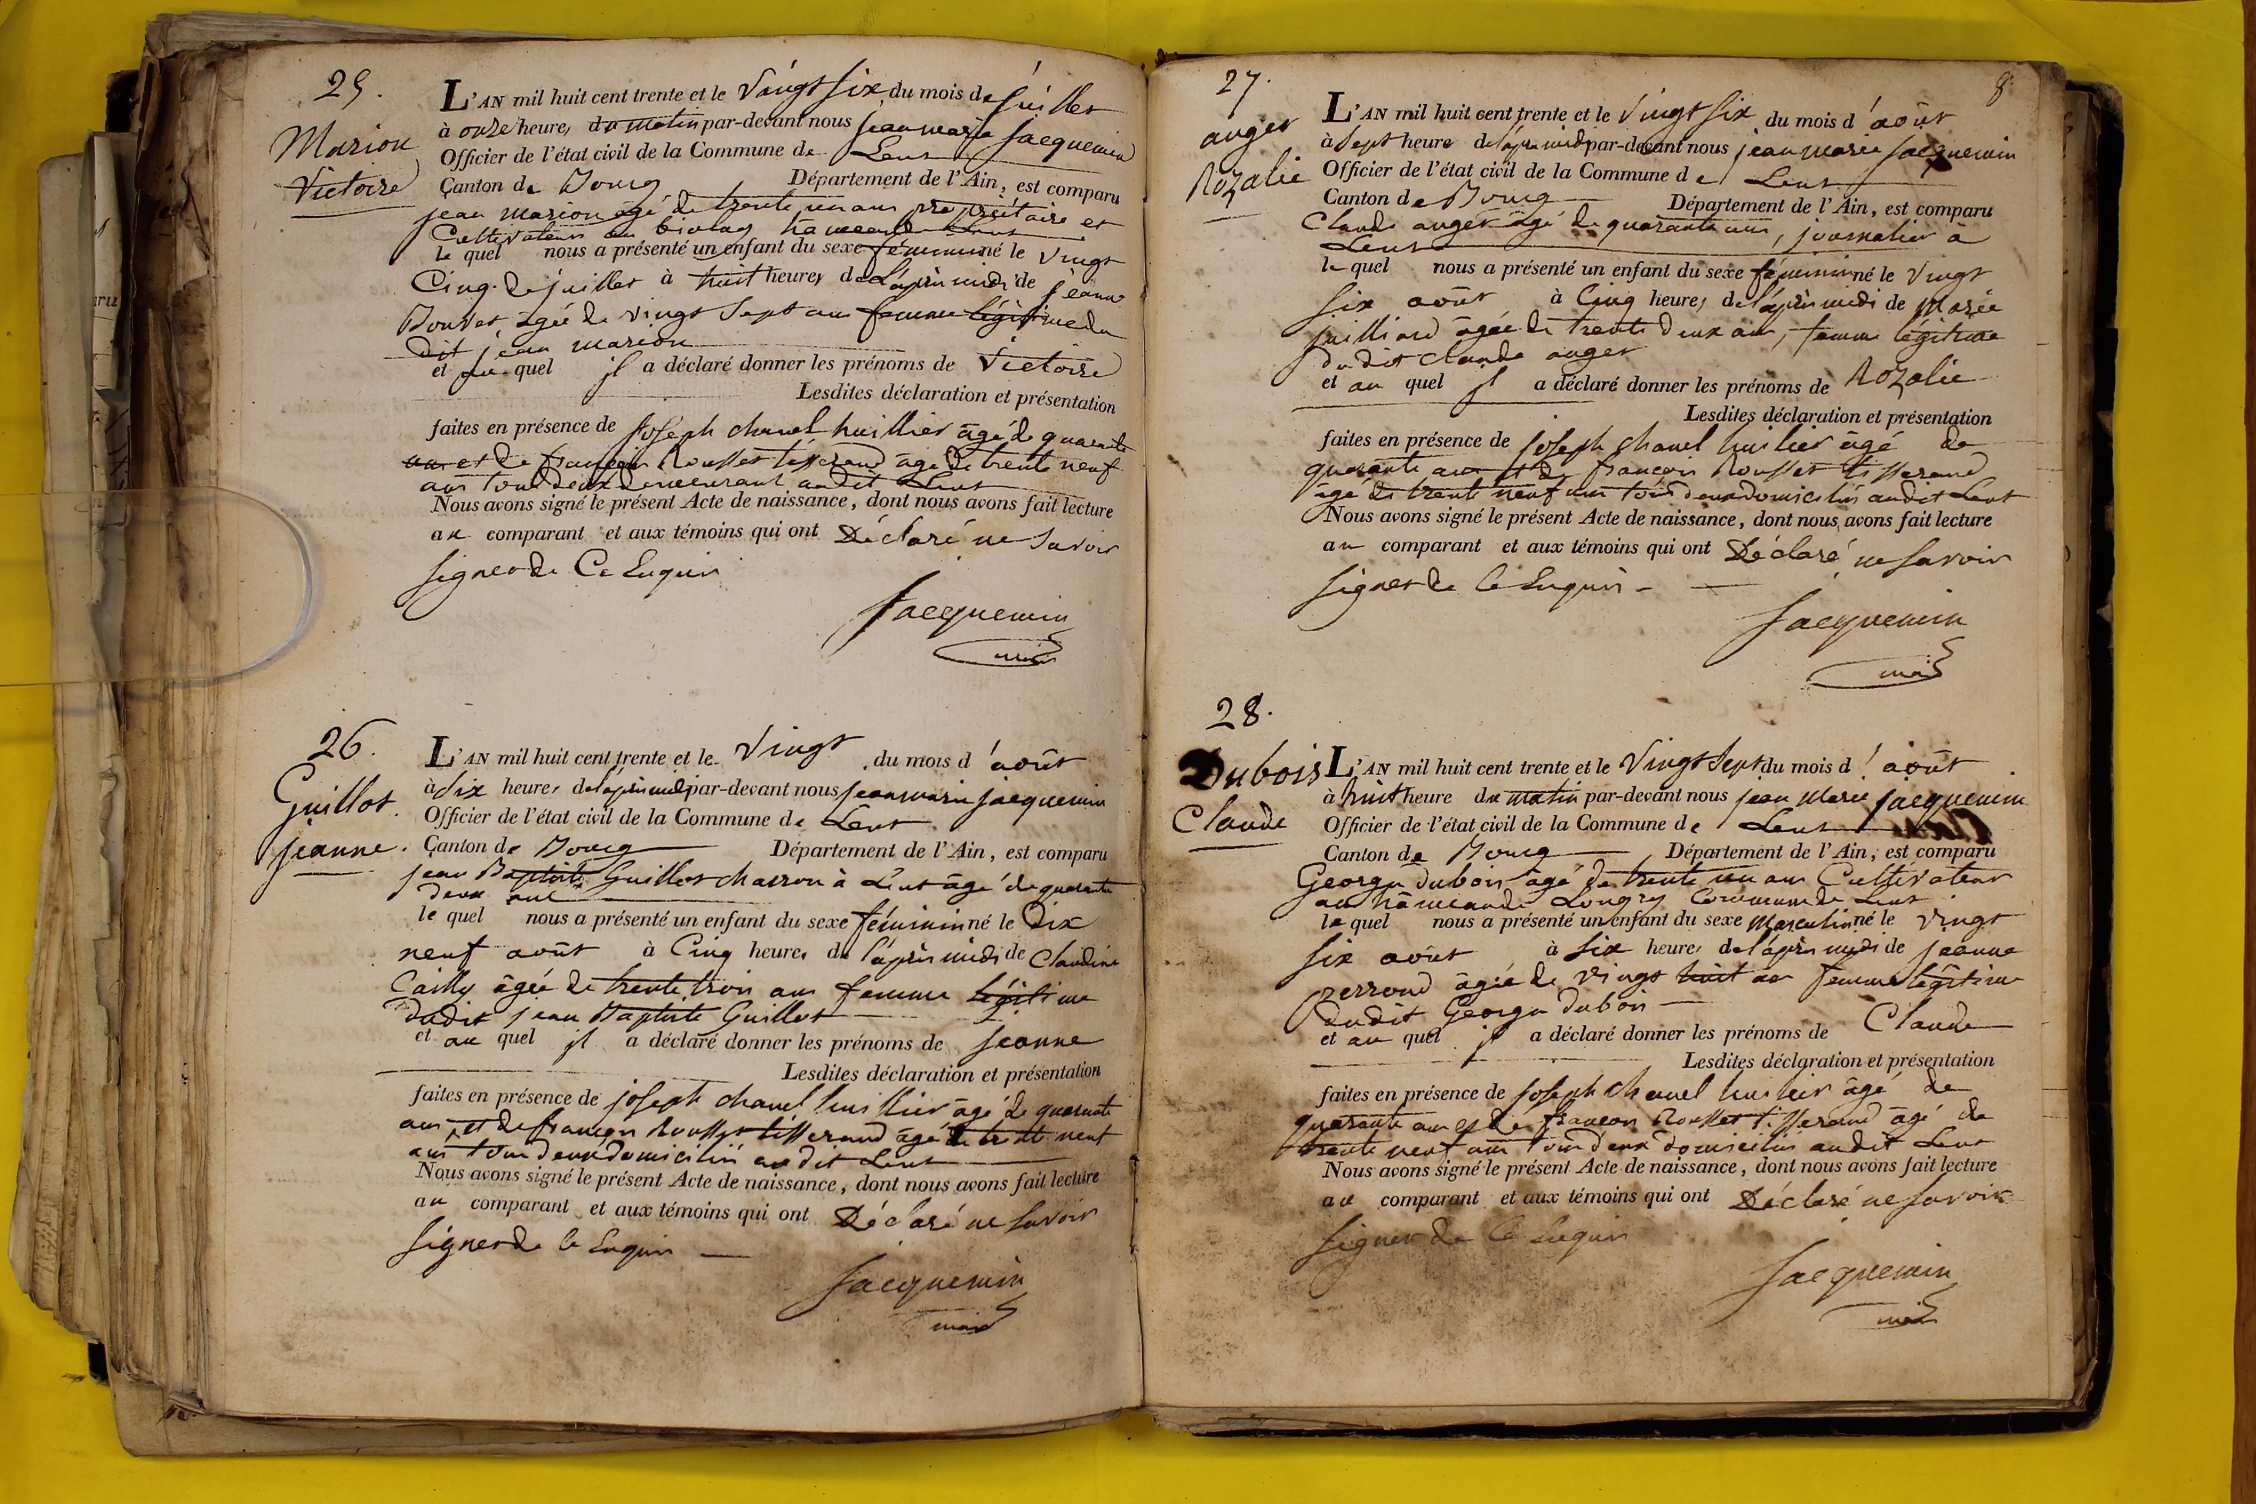 25.
Marion
Victoire
L'AN mil huit cent trente et le Vingt Six du mois de Juillet
à onze heures du matin par-devant nous jean marie Jacquemin
Officier de l'état civil de la Commune de Lent
Canton de Bourg Département de l'Ain, est comparu
jean marion âgé de trente un ans propriétaire et
Cultivateur au hameau de Lent
le quel nous a présenté un enfant du sexe féminin né le Vingt
Cinq de juillet à huit heures de l'après midi de jeanne
Bouvet âgée de vingt Sept ans femme légitime du
dit jean marion
et au quel il a déclaré donner les prénoms de Victoire
Lesdites déclaration et présentation
faites en présence de Joseph chanel huillier âgé de quarante
ans et de françois Rousset tisserand âgé de trente neuf
ans tous deux demeurant audit Lent
Nous avons signé le présent Acte de naissance, dont nous avons fait lecture
au comparant et aux témoins qui ont Déclaré ne Savoir
Signer de Ce Enquis
Jacquemin
maire
26.
Guillot.
jeanne.
L'AN mil huit cent trente et le Vingt du mois d'août
à Six heures de l'après midi par-devant nous jean marie jacquemin
Officier de l'état civil de la Commune de Lent
Canton de Bourg Département de l'Ain, est comparu
jean Baptiste Guillot charron à Lent âgé de quarante
deux ans
le quel nous a présenté un enfant du sexe féminin né le Dix
neuf août à Cinq heures de l'après midi de Claudine
Cailly âgée de trente trois ans femme légitime
dudit jean Baptiste Guillot
et au quel il a déclaré donner les prénoms de Jeanne
Lesdites déclaration et présentation
faites en présence de joseph chanel huillier âgé de quarante
ans et de françois Rousset tisserand âgé de trente neuf
ans tous deux domiciliés au dit Lent
Nous avons signé le présent Acte de naissance, dont nous avons fait lecture
au comparant et aux témoins qui ont Déclaré ne Savoir
Signer de Ce Enquis
Jacquemin
maire
8
27.
auger
Rozalie
L'AN mil huit cent trente et le Vingt Six du mois d'août
à Sept heure de l'après midi par-devant nous jean marie Jacquemin
Officier de l'état civil de la Commune de Lent
Canton de Bourg Département de l'Ain, est comparu
Claude auger âgé de quarante ans, journalier à
Lent
le quel nous a présenté un enfant du sexe féminin né le Vingt
Six août à Cinq heures de l'après midi de Marie
juilliard âgée de trente deux ans, femme légitime
dudit Claude auger
et au quel il a déclaré donner les prénoms de Rozalie
Lesdites déclaration et présentation
faites en présence de joseph chanel huilier âgé de
quarante ans et de françois Rousset tisserand
âgé de trente neuf ans tous deux domiciliés audit Lent
Nous avons signé le présent Acte de naissance, dont nous avons fait lecture
au comparant et aux témoins qui ont Déclaré ne Savoir
Signer de Ce Enquis
Jacquemin
maire
28.
Dubois
Claude
L'AN mil huit cent trente et le Vingt Sept du mois d'août
à huit heure du matin par-devant nous jean Marie jacquemin
Officier de l'état civil de la Commune de Lent
Canton de Bourg Département de l'Ain, est comparu
George Dubois âgé de trente un ans Cultivateur
au hameau de Longry Commune de Lent
le quel nous a présenté un enfant du sexe Masculin né le Vingt
Six août à Six heures de l'après midi de jeanne
perroud âgée de Vingt huit ans femme légitime
dudit George Dubois
et au quel il a déclaré donner les prénoms de Claude
Lesdites déclaration et présentation
faites en présence de Joseph chanel huilier âgé de
quarante ans et de françois Rousset tisserand âgé de
trente neuf ans tous deux domiciliés audit Lent
Nous avons signé le présent Acte de naissance, dont nous avons fait lecture
au comparant et aux témoins qui ont Déclaré ne Savoir
Signer de Ce Enquis
Jacquemin
maire